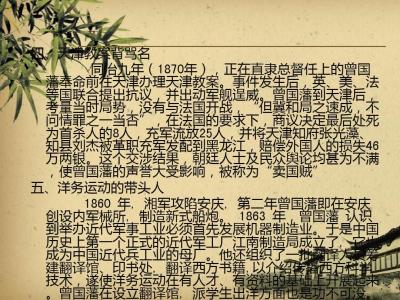 四、天津教案背骂名
同治九年(1870年),正在直隶总督任上的曾国
藩奉命前往天津办理天津教案。事件发生后,英、美、法
等国联合提出抗议,并出动军舰逞威。曾国藩到天津后,
考量当时局势,没有与法国开战,“但冀和局之速成,不
问情罪之一当否”,在法国的要求下,商议决定最后处死
为首杀人的8人,充军流放25人,并将天津知府张光藻、
知县刘杰被革职充军发配到黑龙江,赔偿外国人的损失46
万两银。这个交涉结果,朝廷人士及民众舆论均甚为不满
,使曾国藩的声誉大受影响,被称为“卖国贼”
五、洋务运动的带头人
1860 年,湘军攻陷安庆,第二年曾国藩即在安庆
创设内军械所,制造新式船炮。 1863 年,曾国藩 认识
到举办近代军事工业必须首先发展机器制造业。于是中国
历史上第一个正式的近代军工厂江南制造局成立了,它
成为中国近代兵工业的母厂。他还组织了一
建翻译馆、印书处,翻译西方书籍,以介绍传播西方科学
技术,遂使洋务运动在有人才、有资料的基础上开展起来
。曾国藩在设立翻译馆,派学生出洋方面也是功不可没